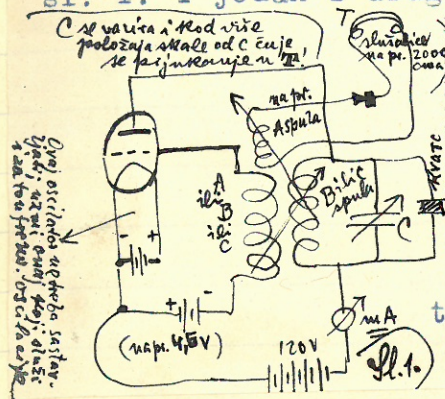 sl. 1. I jedan i drug
C se varira i kod više
položaja skale od C čuje
se pijukanje u "T"!
T
slušalice
napr. 2000
oma
napr.
A spula
A
ili
B
ili
C
B ili C
spula
C
KVARC
Ovaj oscilator ne treba sastav-
ljati, uzmi onaj koji služi
za ton frekv. oscilacije
- +
+ -
(napr. 4,5V)
120V
mA
t
Sl. 1.